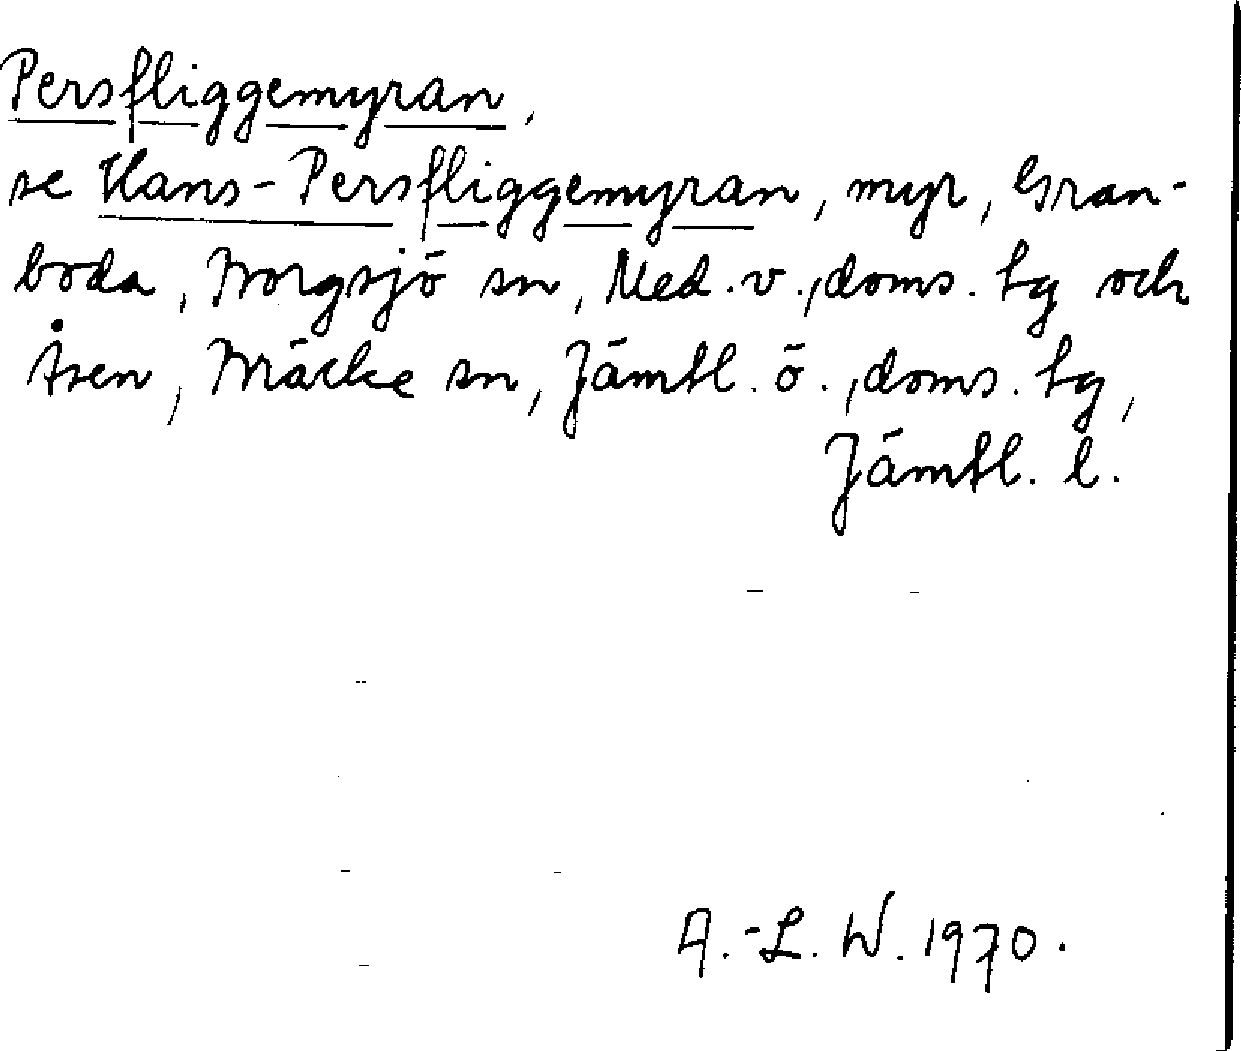 Persfliggemyran,
se Hans-Persfliggemyran, myr, Gran-
boda, Borgsjö sn, Med. v., doms. lg och
Åsen, Bräcke sn, Jämtl. ö., doms. lg,
Jämtl. l.
A.-L. W. 1970.